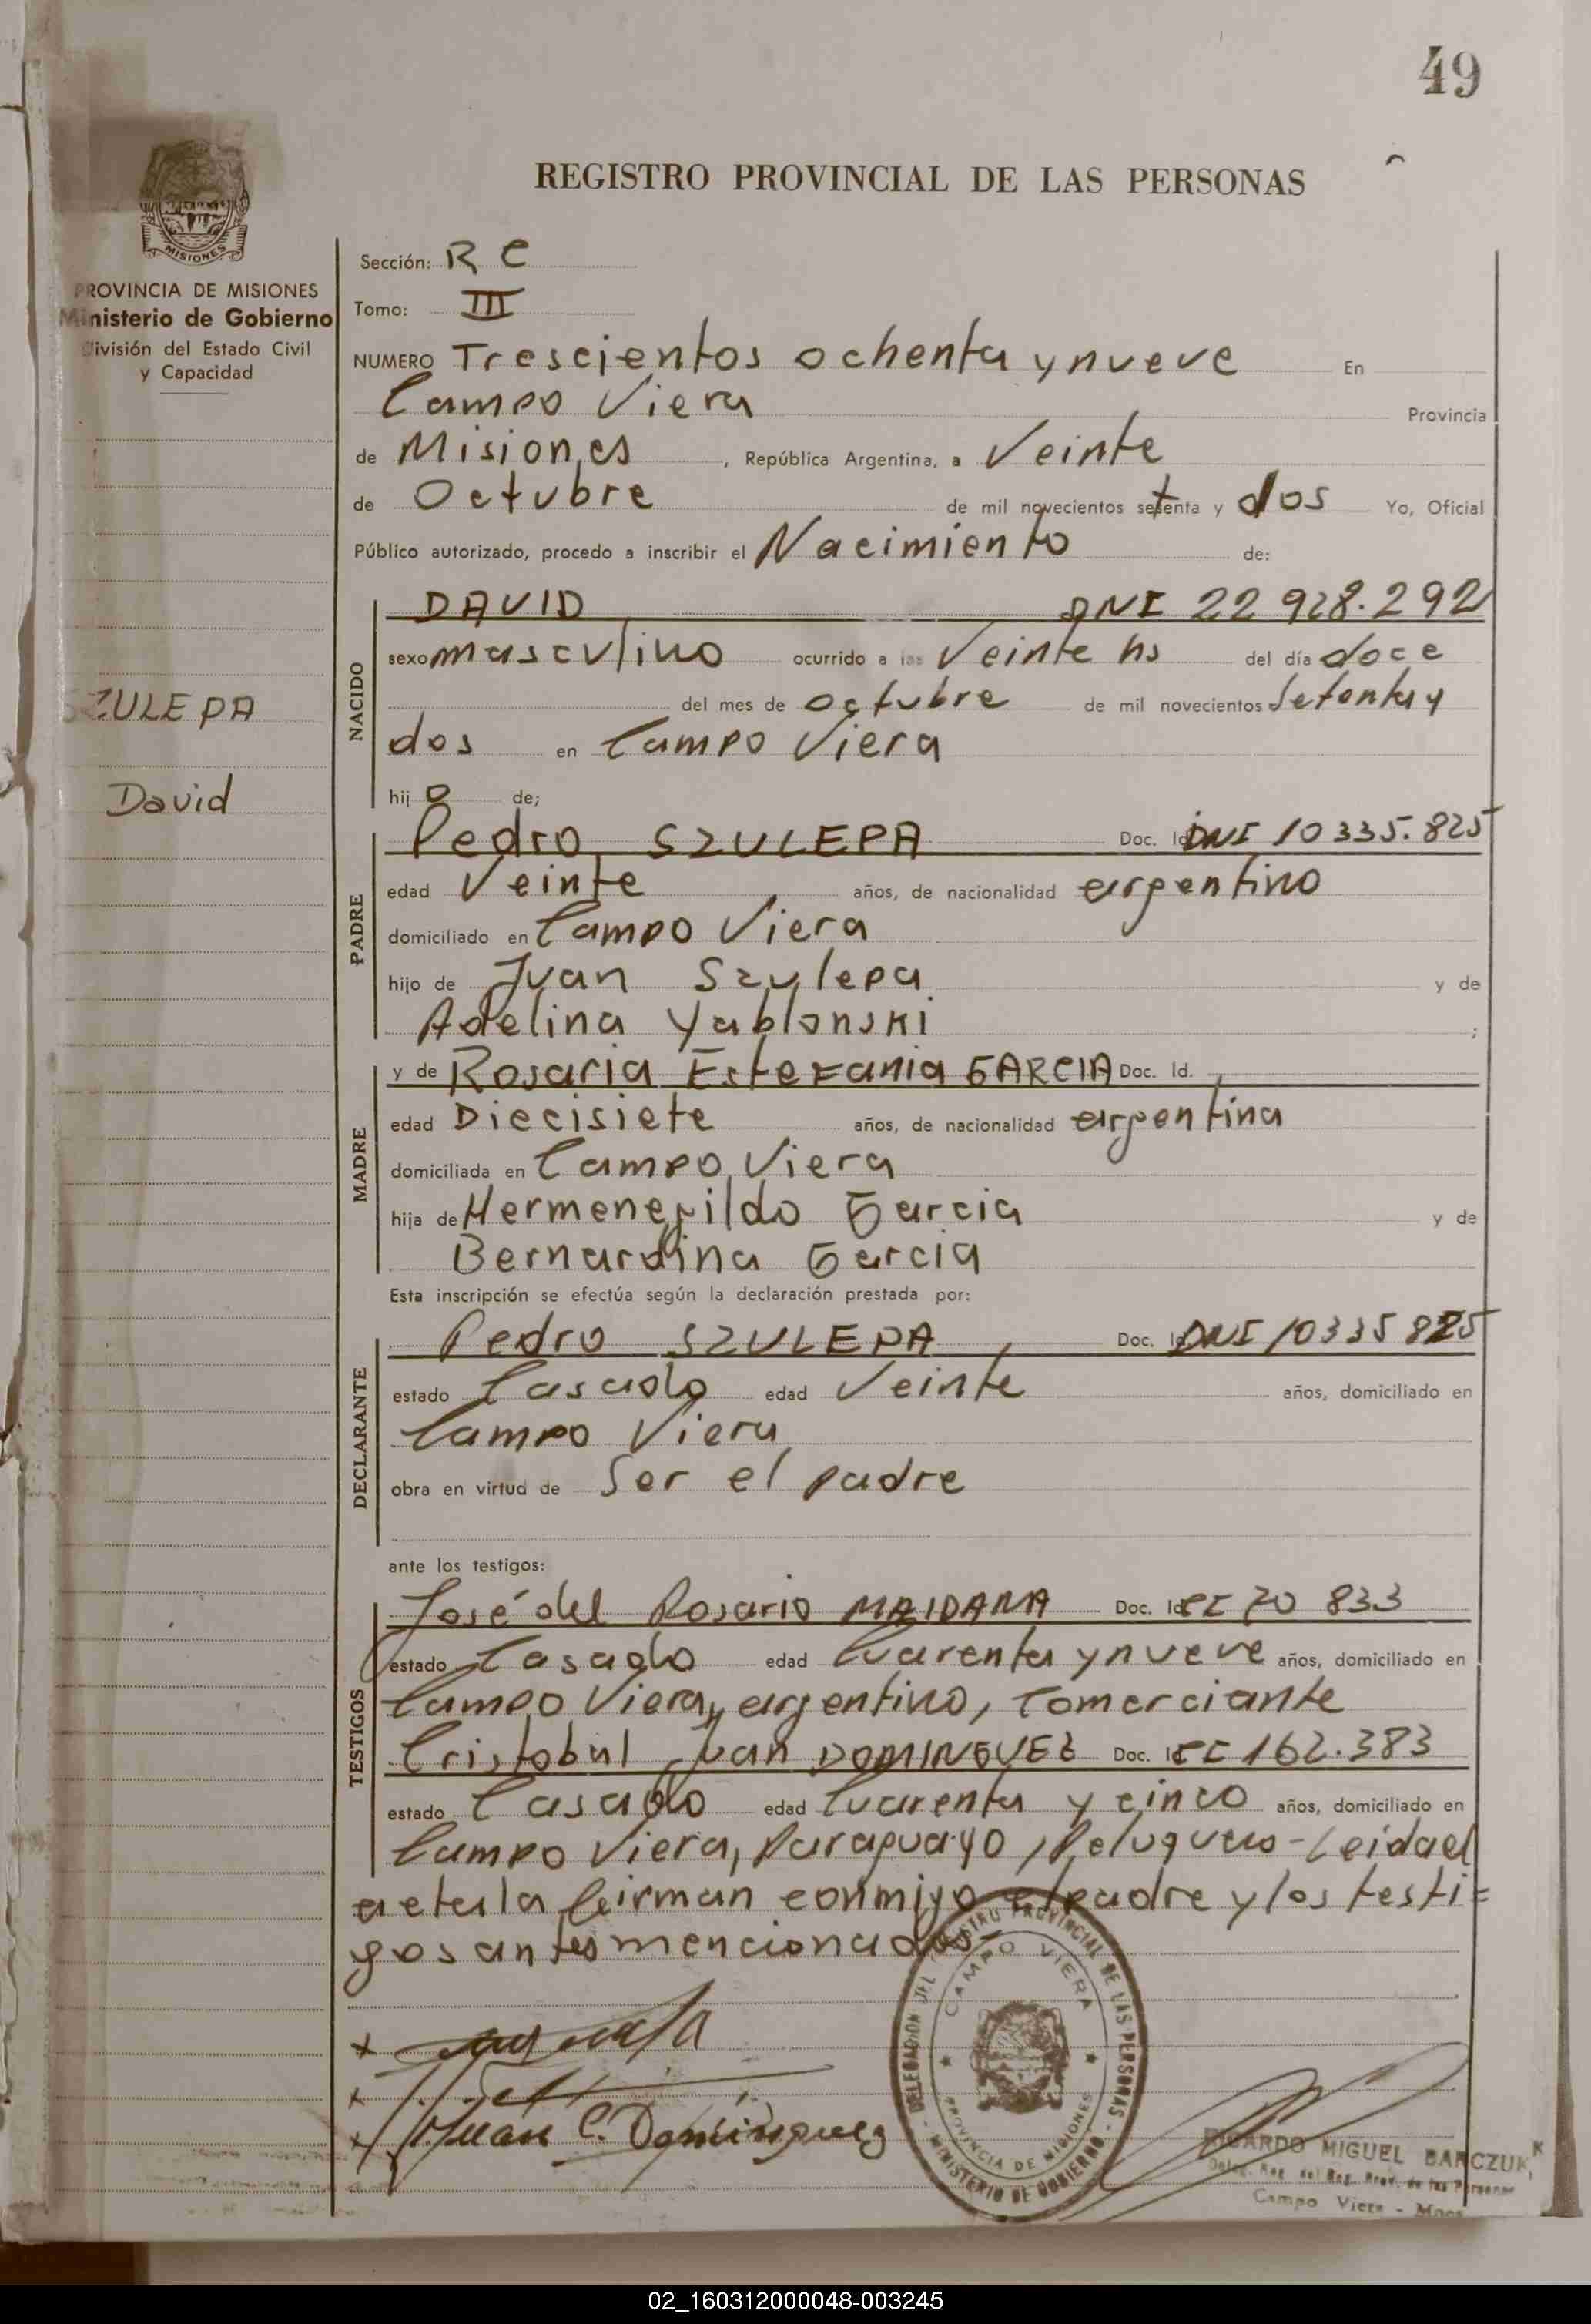 49
REGISTRO PROVINCIAL DE LAS PERSONAS
MISIONES
PROVINCIA DE MISIONES
Ministerio de Gobierno
División del Estado Civil
y Capacidad
SZULEPA
David
Sección: R C
Tomo: III
NUMERO Trescientos ochenta y nueve En
Campo Viera Provincia
de Misiones, República Argentina, a Veinte
de Octubre de mil novecientos setenta y dos Yo, Oficial
Público autorizado, procedo a inscribir el Nacimiento de:
NACIDO
DAVID DNI 22 928.292
sexo masculino ocurrido a las Veinte hs del día doce
del mes de octubre de mil novecientos setenta y
dos en Campo Viera
hijo de;
PADRE
Pedro SZULEPA Doc. Id DNI 10335.825
edad Veinte años, de nacionalidad argentino
domiciliado en Campo Viera
hijo de Juan Szulepa y de
Adelina Yablonski ;
MADRE
y de Rosaria Estefania GARCIA Doc. Id.
edad Diecisiete años, de nacionalidad argentina
domiciliada en Campo Viera
hija de Hermenegildo Garcia y de
Bernardina Garcia
Esta inscripción se efectúa según la declaración prestada por:
DECLARANTE
Pedro SZULEPA, Doc. Id DNI 10335 825
estado Casado edad Veinte años, domiciliado en
Campo Viera
obra en virtud de Ser el padre
ante los testigos:
TESTIGOS
José del Rosario MAIDANA Doc. Id CI 70 833
estado Casado edad Cuarenta y nueve años, domiciliado en
Campo Viera, argentino, Comerciante
Cristobal Juan DOMINGUEZ Doc. Id CI 162.383
estado Casado edad Cuarenta y cinco años, domiciliado en
Campo Viera, Paraguayo, Peluquero - Leida el
acta la firman conmigo el padre y los testi=
gos antes mencionados-
Juan C. Dominguez
DELEGACION DEL REGISTRO PROVINCIAL DE LAS PERSONAS - MINISTERIO DE GOBIERNO -
CAMPO VIERA
PROVINCIA DE MISIONES
RICARDO MIGUEL BARCZUK
Deleg. Reg. del Reg. Prov. de las Personas
Campo Viera - Mnes
02_160312000048-003245